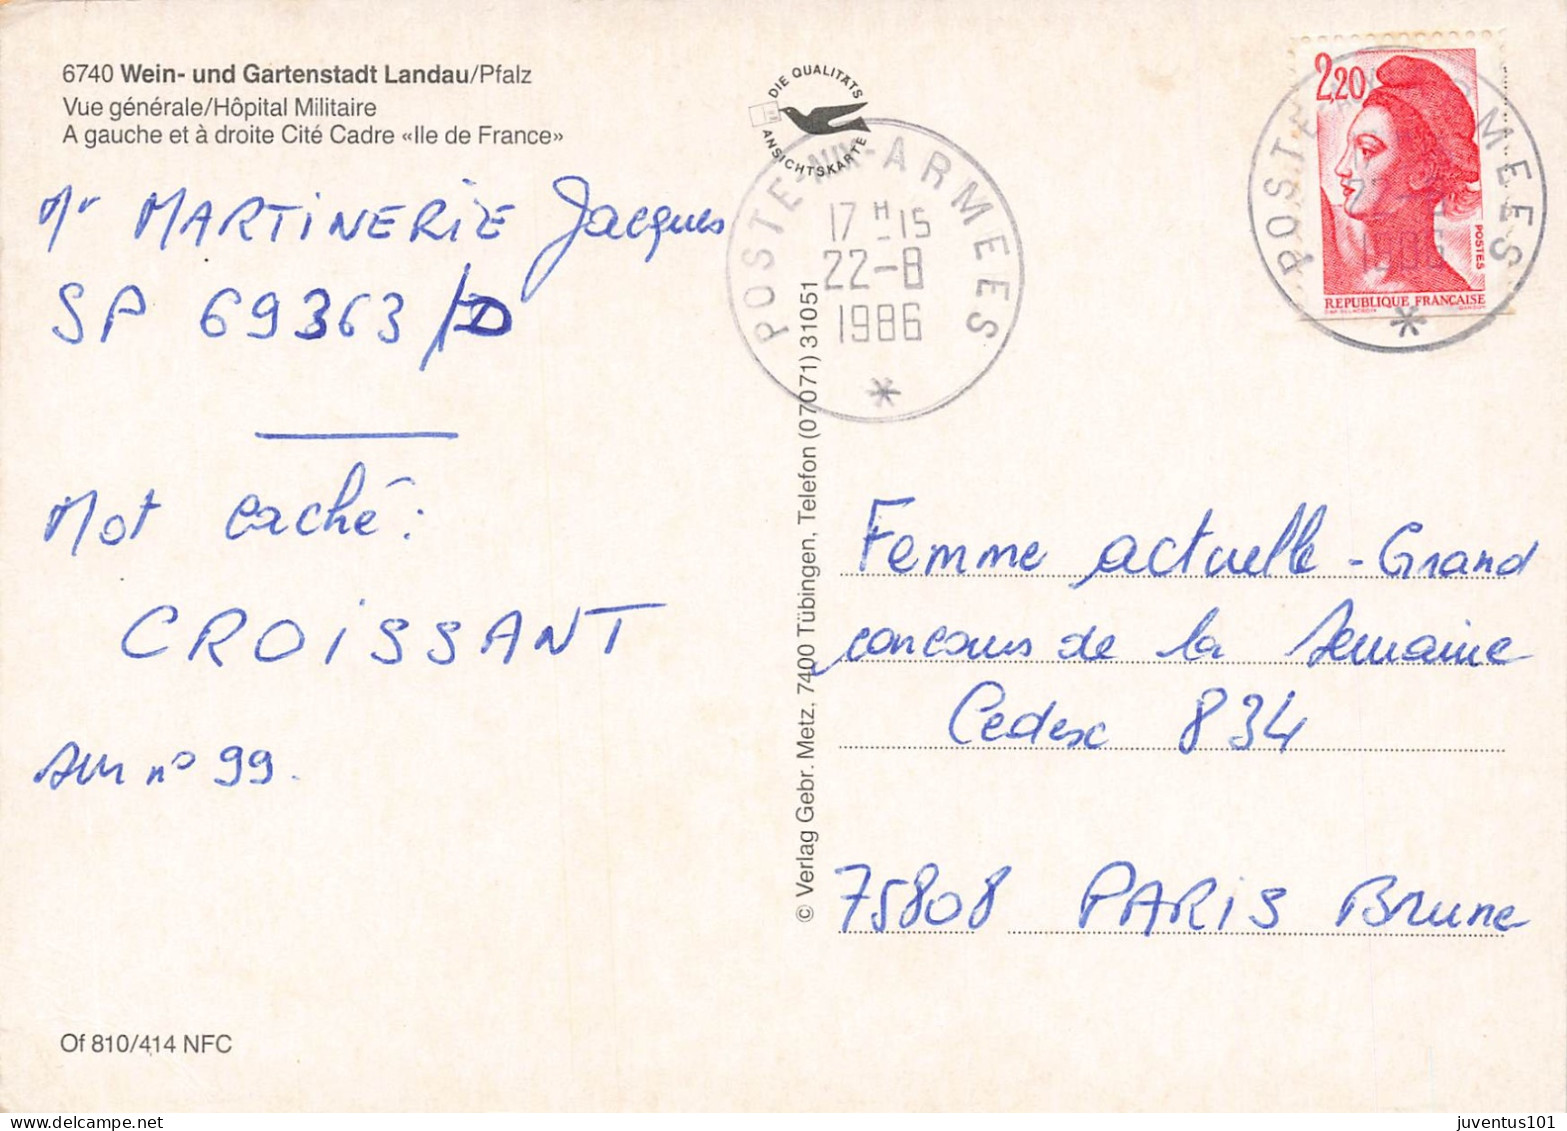 6740 Wein- und Gartenstadt Landau/Pfalz
Vue générale/Hôpital Militaire
A gauche et à droite Cité Cadre «Ile de France»
Mr MARTINERIE Jacques
SP 69363/D
Mot caché :
CROISSANT
sur n° 99.
Of 810/414 NFC
DIE QUALITÄTS
ANSICHTSKARTE
POSTE-NIX-ARMEES
17 H 15
22-8
1986
© Verlag Gebr. Metz, 7400 Tübingen, Telefon (07071) 31051
2,20
POSTES
REPUBLIQUE FRANÇAISE
POSTE MEES
Femme actuelle - Grand
concours de la semaine
Cedex 834
75808 PARIS Brune
juventus101